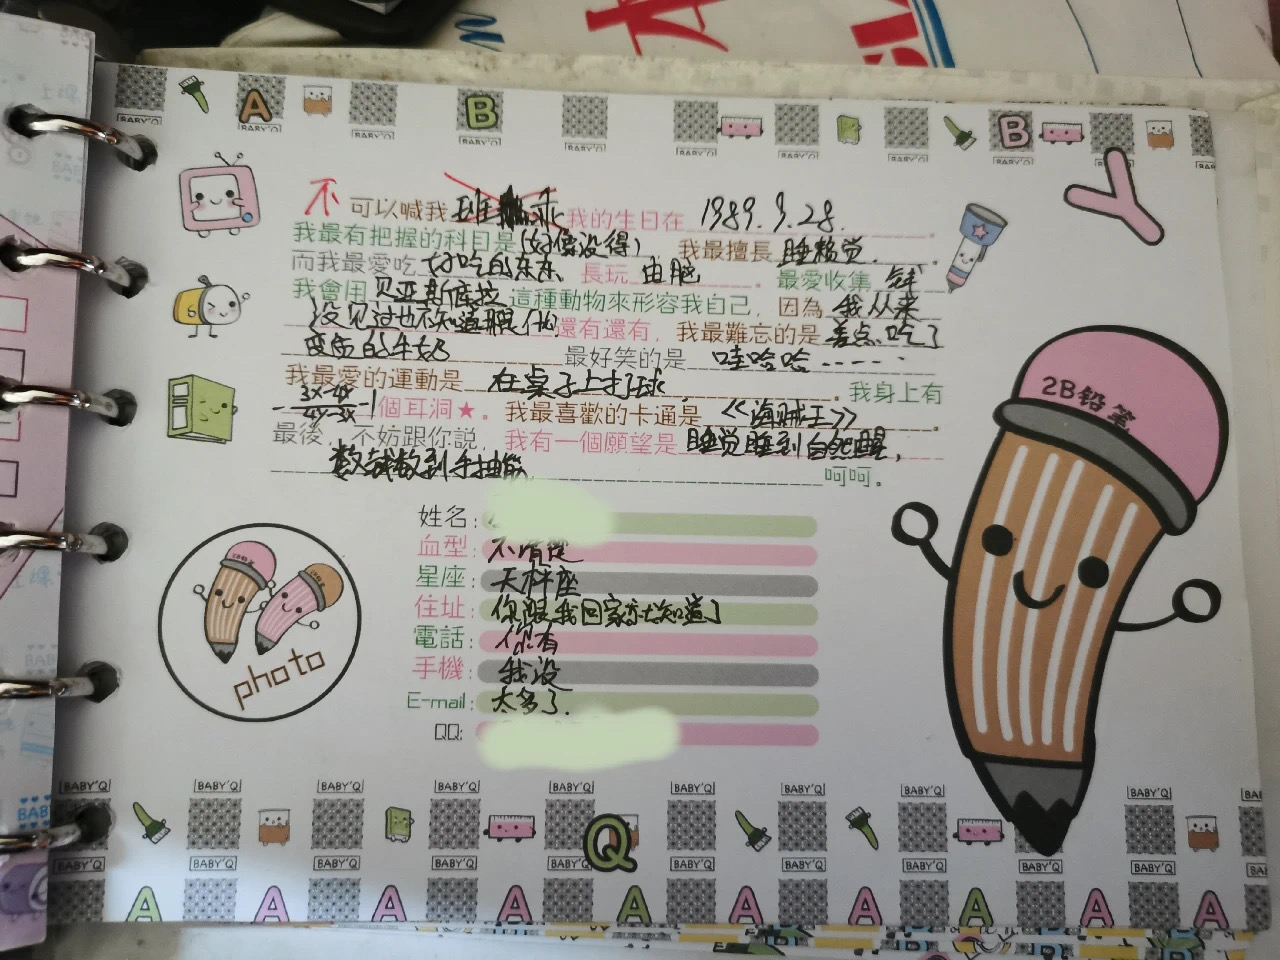 A B B Y
BABY'Q BABY'Q BABY'Q BABY'Q BABY'Q BABY'Q
不可以喊我 班 乖 我的生日在 1989.9.28.
我最有把握的科目是(好像没得) 我最擅長 睡懒觉.
而我最愛吃 好吃的东东、長玩 电脑。最愛收集 钱
我會用 贝亚斯库拉 這種動物來形容我自己，因為 我从来
没见过也不知道是什么 還有還有，我最難忘的是 差点吃了
变质的牛奶 最好笑的是 哇哈哈······
我最愛的運動是 在桌子上打球 。我身上有
3x-4x/4x-3x -1 個耳洞★。我最喜歡的卡通是 《海贼王》。
最後，不妨跟你說，我有一個願望是 睡觉睡到自然醒，
数钱数到手抽筋 呵呵。
2B铅笔
姓名:
血型: 不清楚
星座: 天秤座
住址: 你跟我回家就知道了
電話: 你有
手機: 我没
E-mail: 太多了.
QQ:
photo
BABY'Q BABY'Q BABY'Q BABY'Q BABY'Q BABY'Q BABY'Q BABY'Q BABY'Q
Q
BABY'Q BABY'Q BABY'Q BABY'Q BABY'Q BABY'Q BABY'Q BABY'Q BABY'Q
A A A A A A A A A A